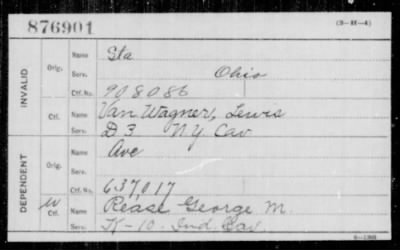 876901 (3-M-4)
INVALID
Orig. Name Sta
Serv. Ohio
Ctf. No. 908086
Ctf. Name Van Wagner, Lewis
Serv. D 3 NY Cav
DEPENDENT
Orig. Name Ave
Serv.
Ctf. No. 637017
W Ctf. Name Rease George M.
Serv. K-10-Ind Cav